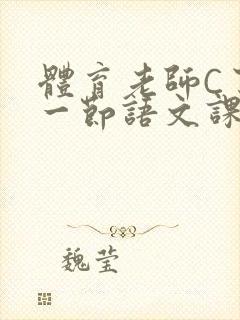 體育老師C了
一節語文課
魏莹